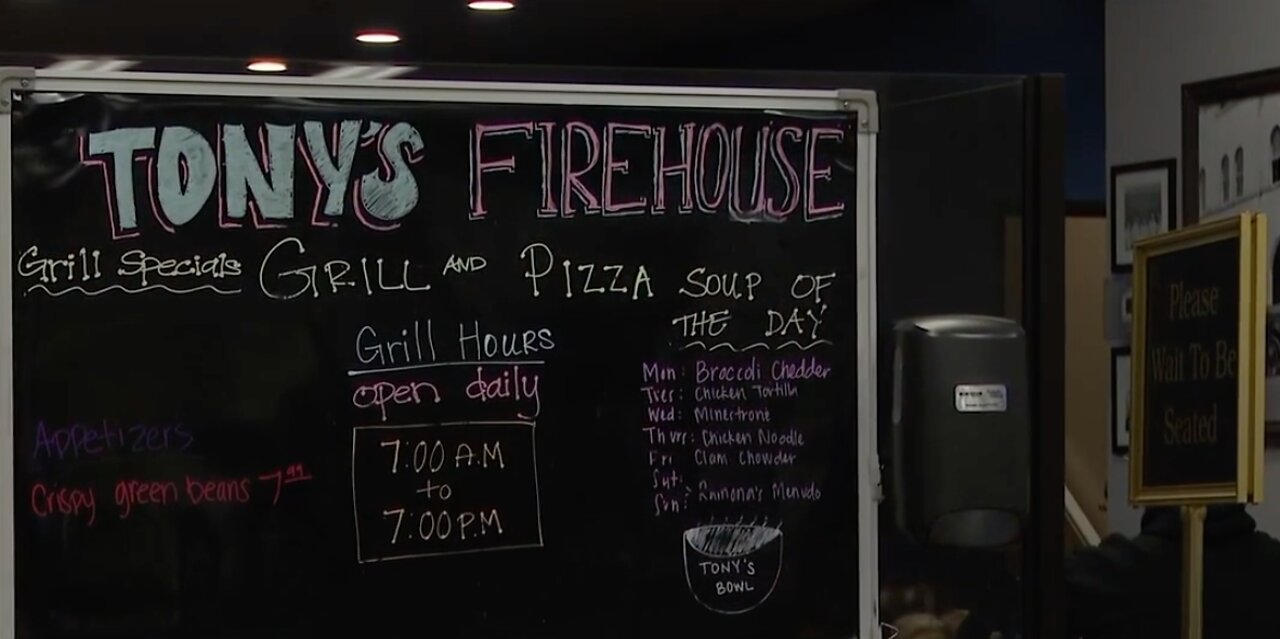 TONY'S FIREHOUSE
Grill Specials
GRILL AND PIZZA
SOUP OF
THE DAY
Grill HOURS
open daily
7:00 A.M
to
7:00 P.M
Appetizers
Crispy green beans 7⁹⁹
Mon: Broccoli Chedder
Tues: Chicken Tortilla
Wed: Minestrone
Thurs: Chicken Noodle
Fri Clam Chowder
Sat:
Sun: Ramona's Menudo
TONY'S
BOWL
Please
Wait To Be
Seated